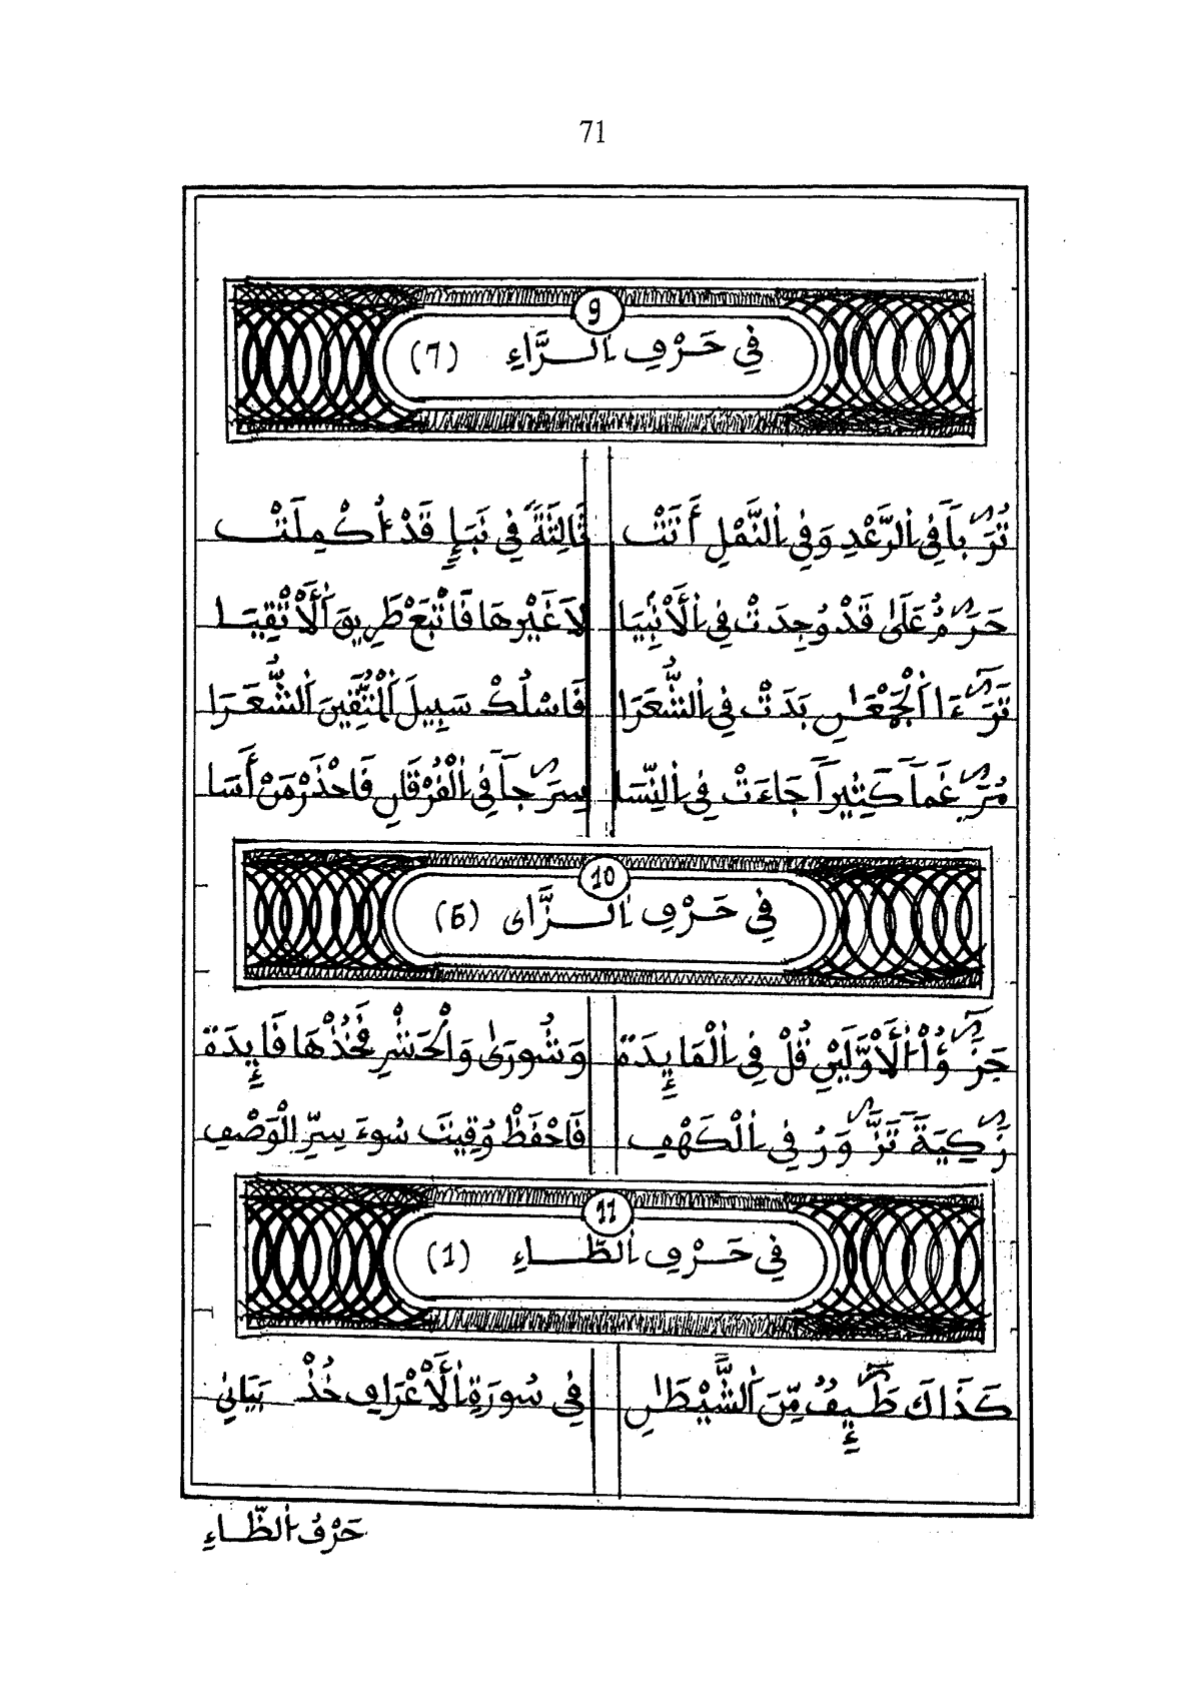 71
9
فِي حَرْفِ اِلـرَّاءِ (7)
تُرَٰباً فِي اِلرَّعْدِ وَفِي اِلنَّمْلِ أَتَتْ ثَالِثَةً فِي نَبَإٍ قَدْ أُكْمِلَتْ
حَرَٰمٌ عَلَىٰ قَدْ وُجِدَتْ فِي اِلَأنْبِيَا لاَ غَيْرِهَا فَاتْبَعْ طَرِيقَ اَلَأتْقِيَـا
تَرَٰٓءَا اَلْجَمْعَٰنِ بَدَتْ فِي اِلشُّعَرَا فَاسْلُكْ سَبِيلَ اَلْمُتَّقِينَ اَلشُّعَـرَا
مُرَٰغَماً كَثِيراً جَاءَتْ فِي اِلنِّسَا سِرَٰجاً فِي اِلْفُرْقَانِ فَاحْذَرْ مَنْ أَسَا
10
فِي حَرْفِ اِلـزَّاى (5)
جَزَٰٓؤُاْ اَلَأوَّلَيْنِ قُلْ فِي اِلْمَائِدَةْ وَشُورَىٰ وَالْحَشْرِ فَخُذْهَا فَائِدَةْ
زَٰكِيَةً تَزَّٰوَرُ فِي اِلْكَهْفِ فَاحْفَظْ وُقِيتَ سُوءَ سِرِّ اِلْوَصْفِ
11
فِي حَرْفِ اِلطَّـاءِ (1)
كَذَاكَ طَٰٓئِفٌ مِّنَ اَلشَّيْطَٰنِ فِي سُورَةِ اِلَأعْرَافِ خُذْ بَيَانِي
حَرْفُ اِلظَّـاءِ